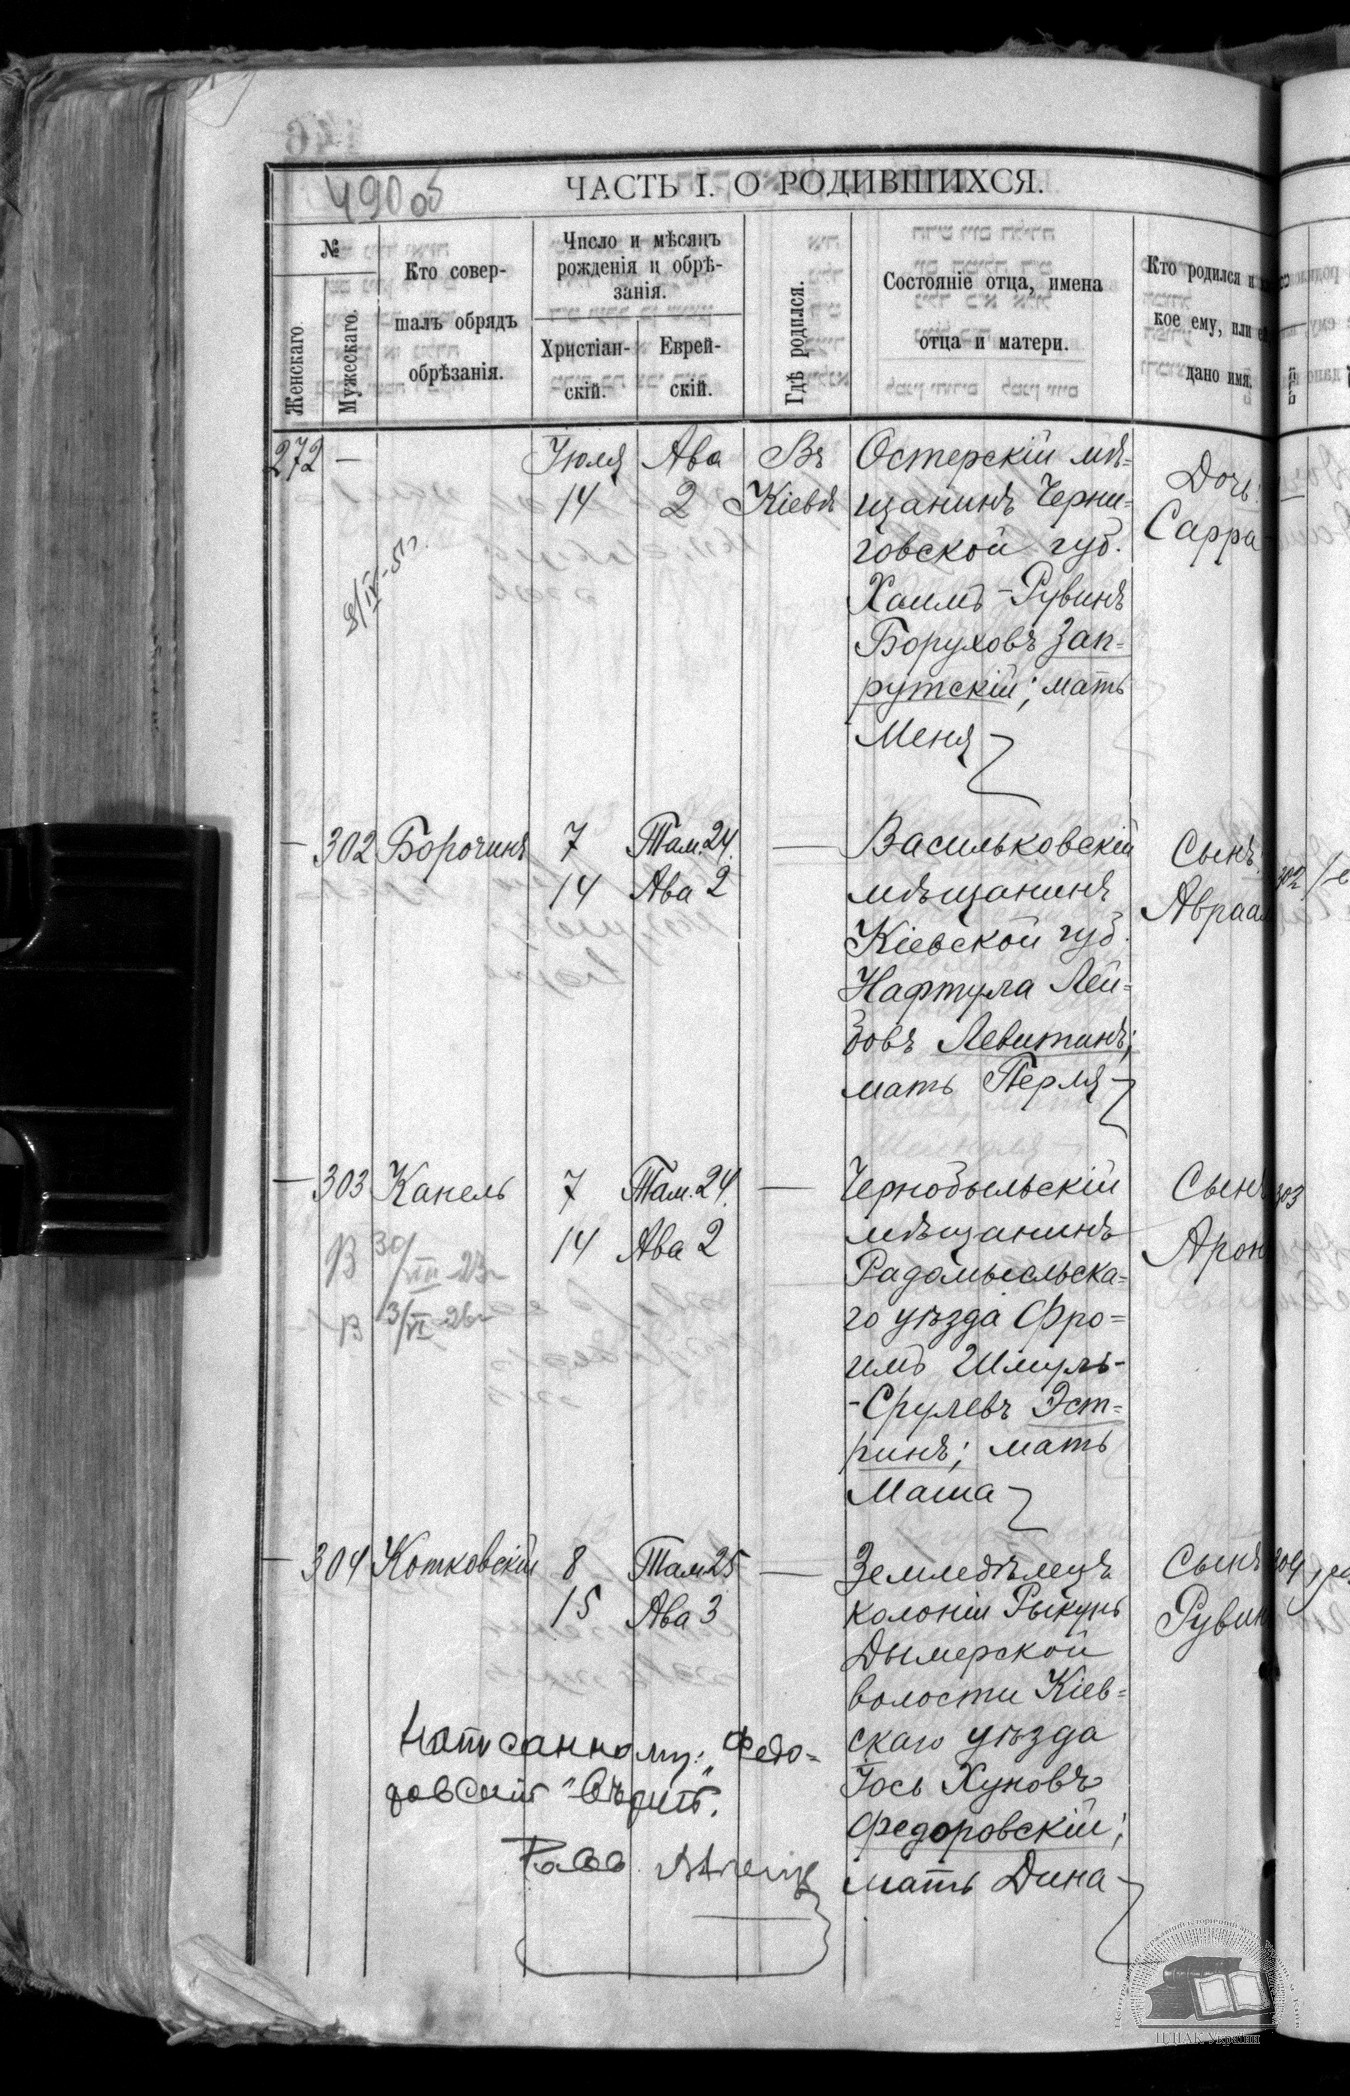 490 об
ЧАСТЬ I. О РОДИВШИХСЯ.
№
Женскаго.
Мужескаго.
Кто совер-
шалъ обрядъ
обрѣзанія.
Число и мѣсяцъ
рожденія и обрѣ-
занія.
Христіан-
скій.
Еврей-
скій.
Гдѣ родился.
Состояніе отца, имена
отца и матери.
Кто родился и
кое ему, или
дано имя.
272 — Іюля Ава Въ Остерскій мѣ-
14 2 Кіевѣ щанинъ Черни-
говской губ.
Хаимъ-Рувинъ
Боруховъ Зап-
рутскій; мать
Меня
Дочь:
Сарра
— 302 Борочинъ 7 Там. 24. — Васильковскій
14 Ава 2 мѣщанинъ
Кіевской губ.
Нафтула Лей-
бовъ Левитинъ;
мать Перля
Сынъ:
Авраам
302
— 303 Канель 7 Там. 24. — Чернобыльскій
14 Ава 2 мѣщанинъ
Радомысльска-
го уѣзда Фро-
имъ Шмуль-
-Срулевъ Эст-
ринъ; мать
Маша
Сынъ
Арон
303
В 30/VIII-23г
В 3/VI-26г
— 304 Котковскій 8 Там. 25 — Земледѣлецъ
15 Ава 3 колоніи Рыкунь
Дымерской
волости Кіев-
скаго уѣзда
Іось Хуновъ
Федоровскій;
мать Дина
Сынъ
Рувин
304
Написанному: „Федо-
ровскій" вѣрить.
ЦДІАК України